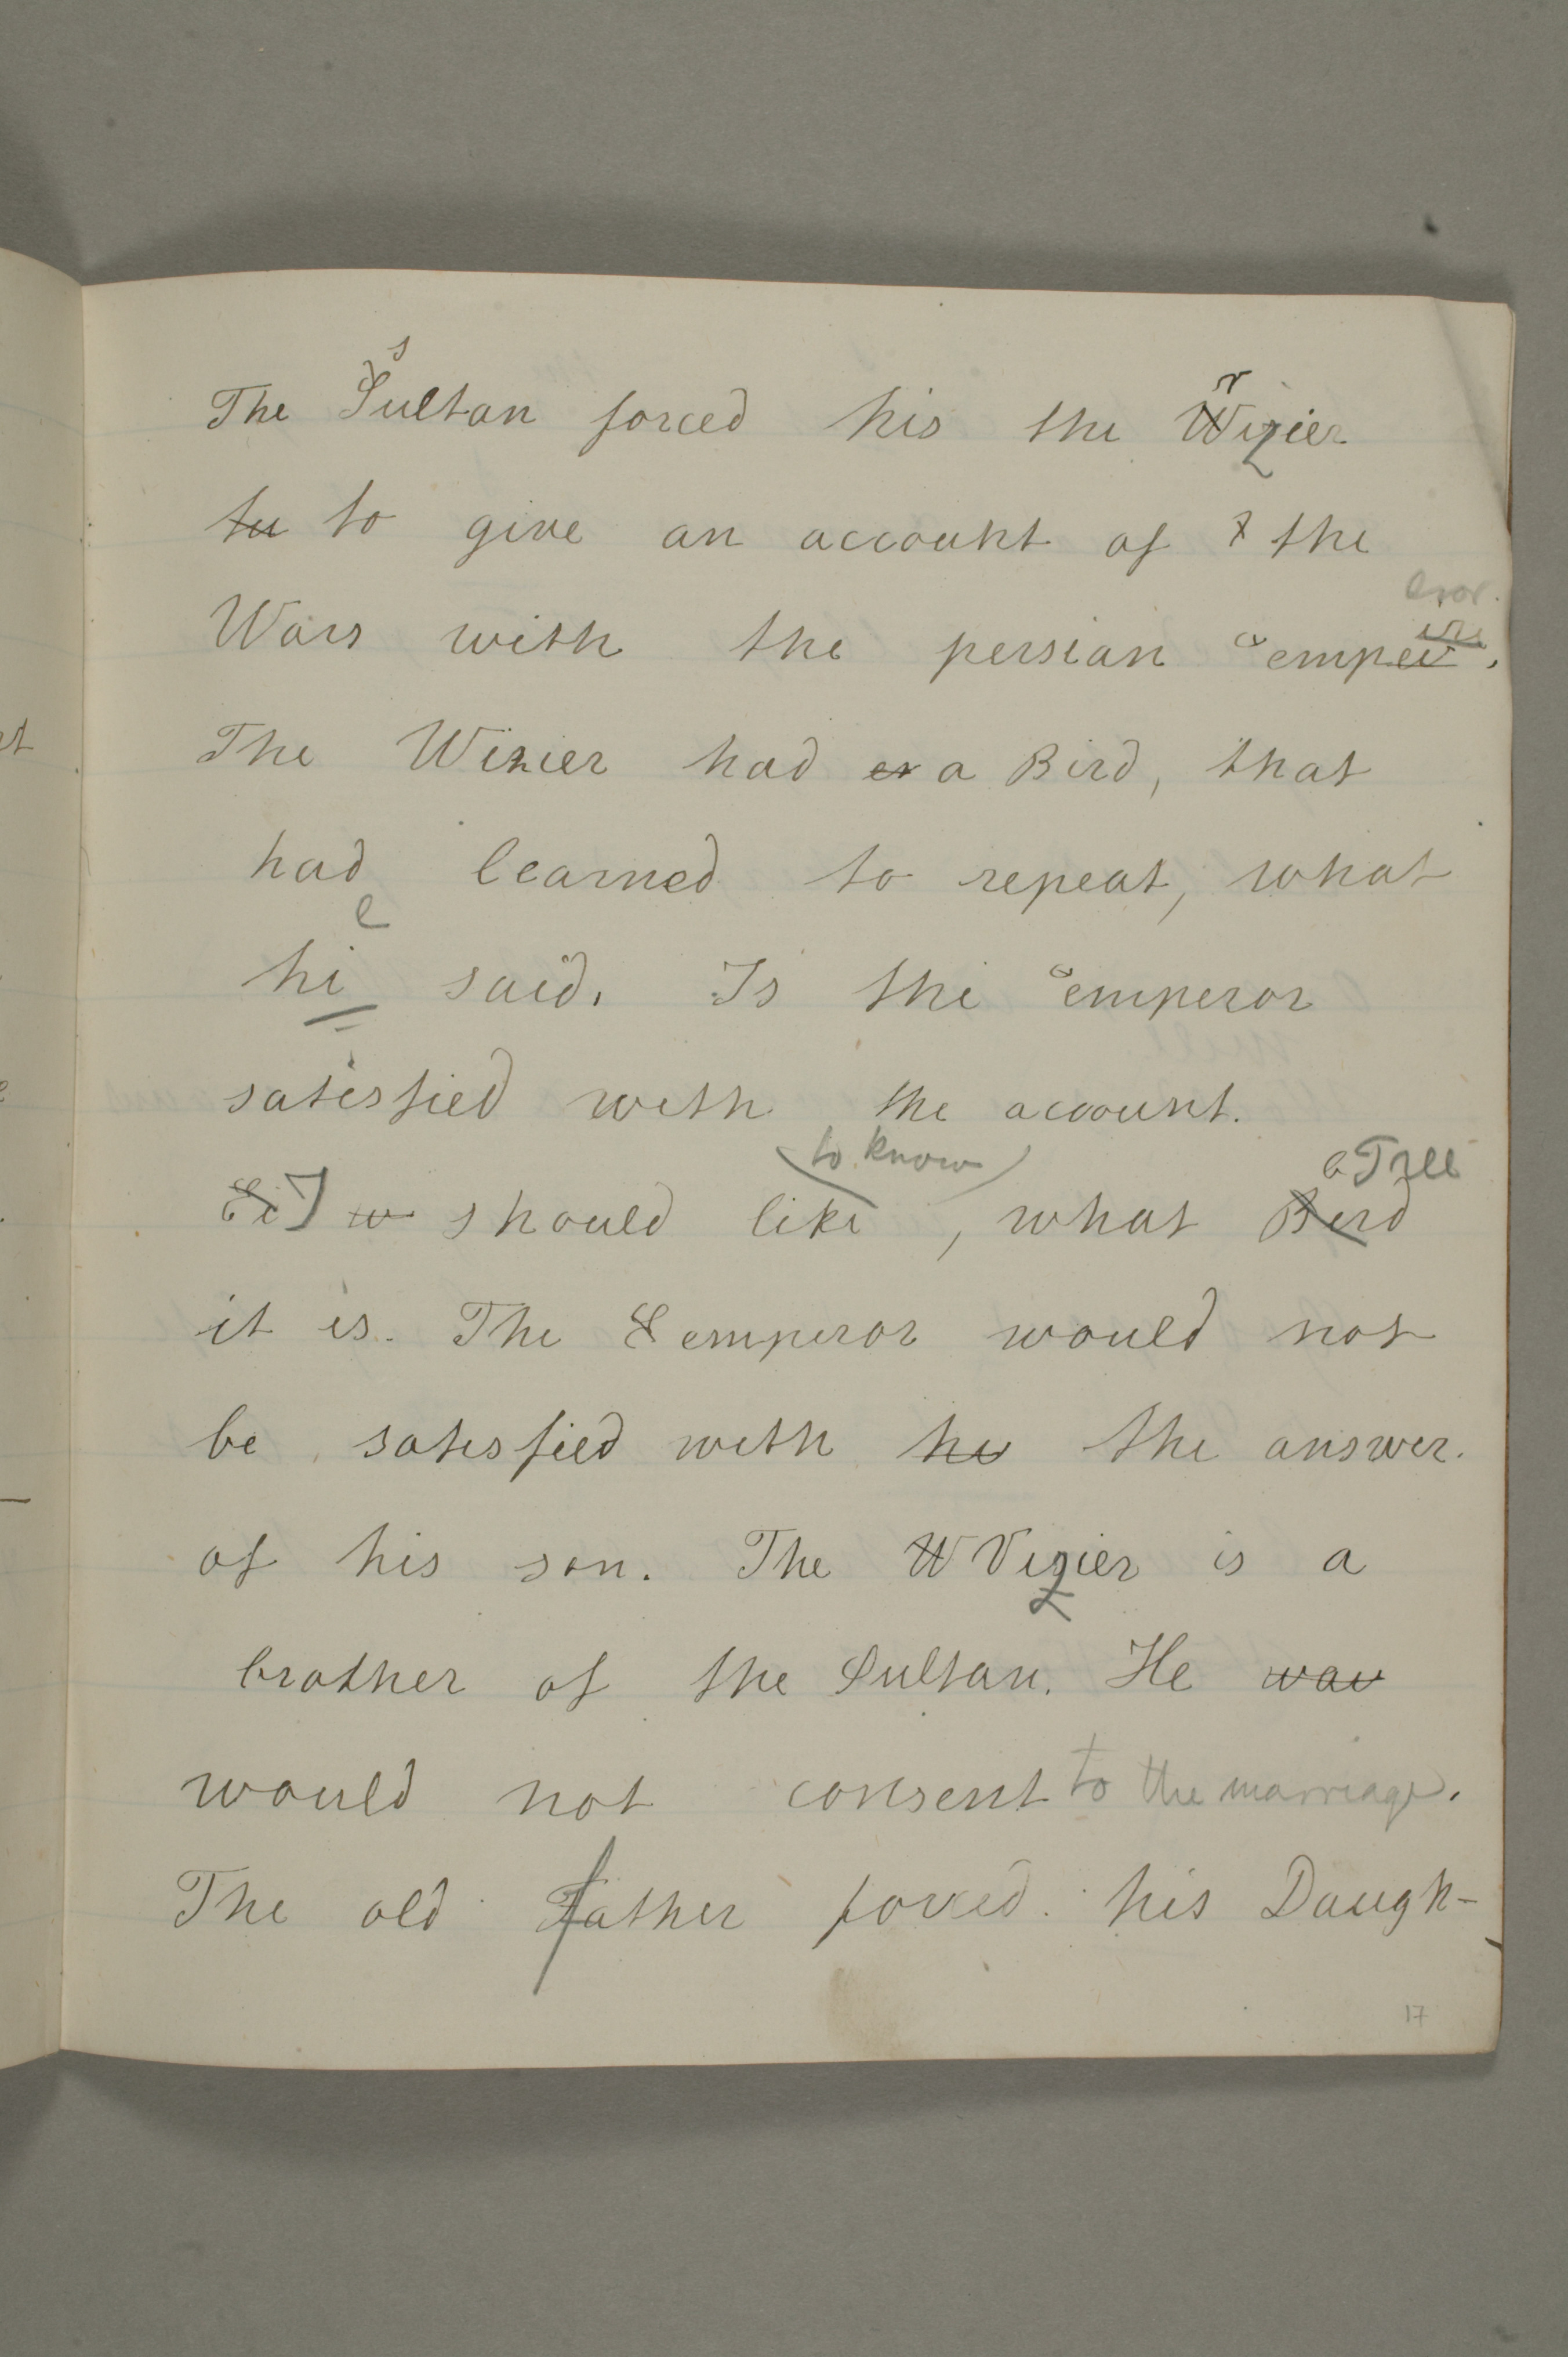 s
The Sultan forced his the Wizier
v
tu to give an account of t the
eror.
Wars with the persian emper.
The Wizier had er a Bird, that
had learned to repeat, what
e
hi said. Is the emperor
satisfied with the account.
to know a Tree
I w should like, what Bird
it is. The S emperor would not
be satisfied with he the answer.
of his son. The W Vizier is a
z
brother of the Sultan. He wau
would not consent to the marriage.
The old father forced his Daugh-
17